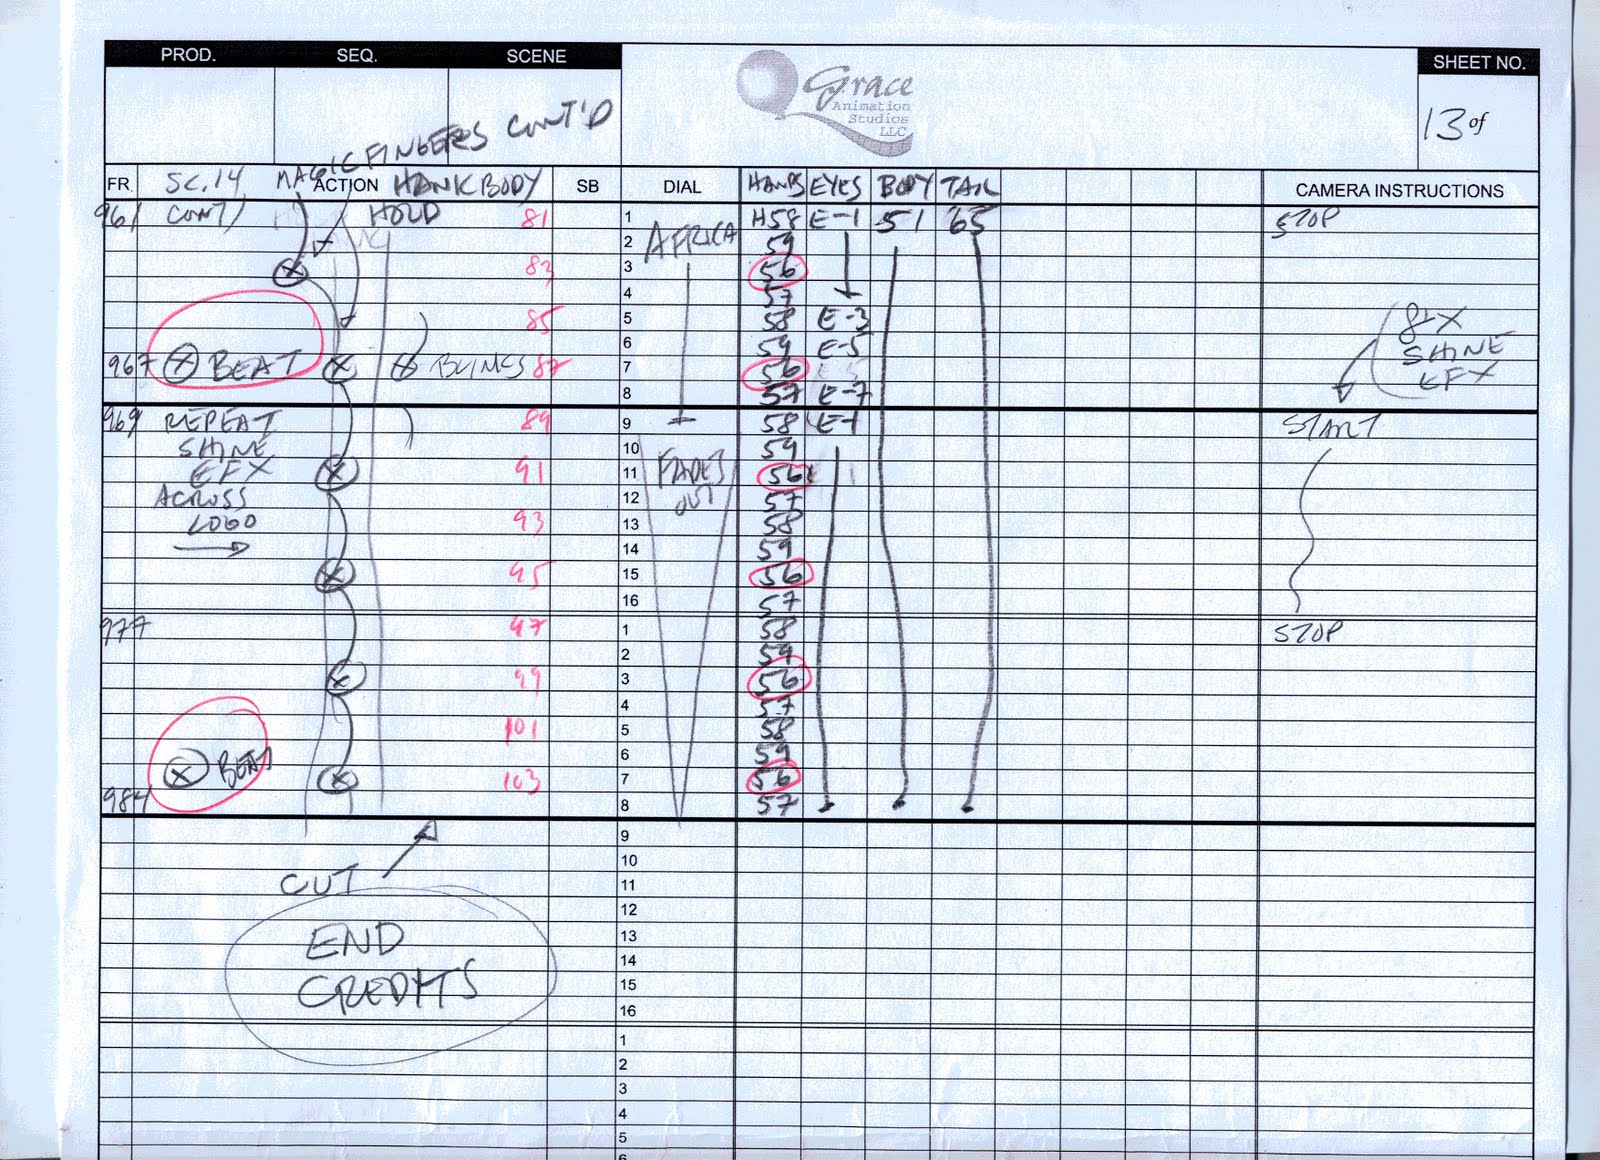 PROD. SEQ. SCENE SHEET NO.
Grace
Animation
Studios
LLC
13 of
MAGIC FINGERS CONT'D
FR. SC.14 ACTION HANKBODY SB DIAL HANDS EYES BODY TAIL CAMERA INSTRUCTIONS
961 CONT/ HOLD 81 1 AFRICA H58 E-1 51 65 STOP
2 59
83 3 56
4 57
85 5 58 E-3 SHINE EFX
6 59 E-5
967 BEAT BLINKS 87 7 56
8 57 E-7
969 REPEAT 89 9 58 E-1 START
SHINE 10 59
EFX 91 11 FADES OUT 56
ACROSS 12 57
LOGO 93 13 58
14 59
95 15 56
16 57
977 97 1 58 STOP
2 59
99 3 56
4 57
101 5 58
6 59
BEAT 103 7 56
984 8 57
9
10
CUT 11
12
END 13
14
CREDITS 15
16
1
2
3
4
5
6